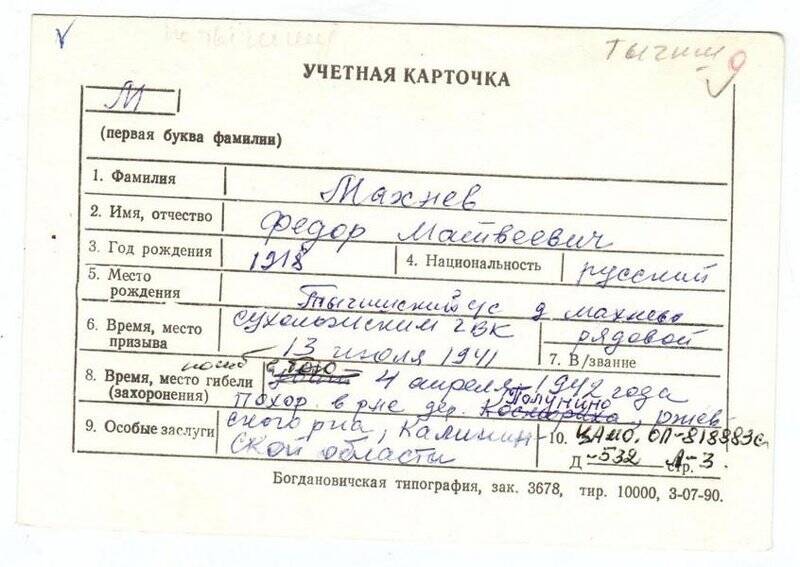 Тычкин 9
УЧЕТНАЯ КАРТОЧКА
М
(первая буква фамилии)
1. Фамилия Махнев
2. Имя, отчество Федор Матвеевич
3. Год рождения 1918 4. Национальность русский
5. Место рождения с/с д Махнево
6. Время, место призыва Сухоложским ГВК
13 июля 1941
7. В/звание рядовой
8. Время, место гибели (захоронения) 4 апреля 1942 года
Похор. в р-не дер. Полунино, Ржев
ского р-на, Калинин-
ской области
9. Особые заслуги
10. ЦАМО. ОП-818883с
Д -532 Л-3. стр.
Богдановичская типография, зак. 3678, тир. 10000, 3-07-90.